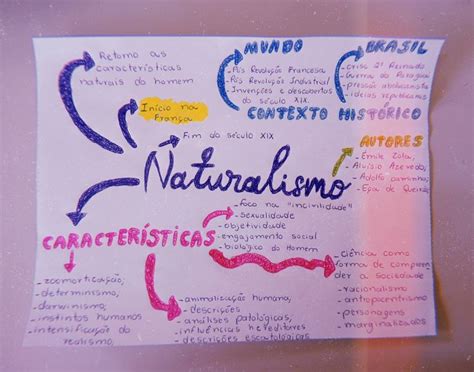 Retorno as
características
naturais do homem
MUNDO
- Pós Revolução Francesa
- Pós Revolução Industrial
- Invenções e descobertas
do século XIX.
BRASIL
- Crise 2º Reinado
- Guerra do Paraguai
- pressão abolicionista
- ideias republicanas
CONTEXTO HISTÓRICO
Início na
França
Fim do século XIX
Naturalismo
AUTORES
- Émile Zola,
- Aluísio Azevedo,
- Adolfo
- Eça de Queirós
CARACTERÍSTICAS
- foco na "incivilidade"
- sexualidade
- objetividade
- engajamento social
- biológico do Homem
- zoomorticação,
- determinismo,
- darwinismo,
- instintos humanos
- intensificação do
realismo,
- animalização humana,
- descrições
- análises patológicas,
- influências hereditores
- descrições escatológicas
- Ciência como
forma de compreen
der a sociedade
- racionalismo
- antropocentismo
- personagens
marginalizados